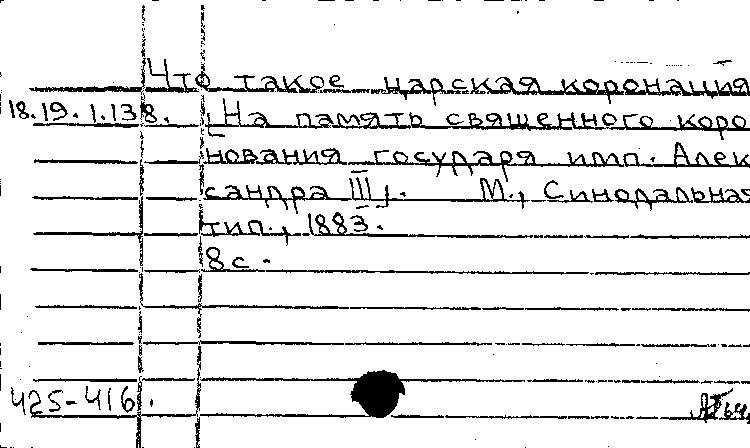 Что такое царская коронация
18.19.1.138. [На память священного коро
нования государя имп. Алек
сандра III]. М., Синодальная
тип., 1883.
8 с.
425-416.